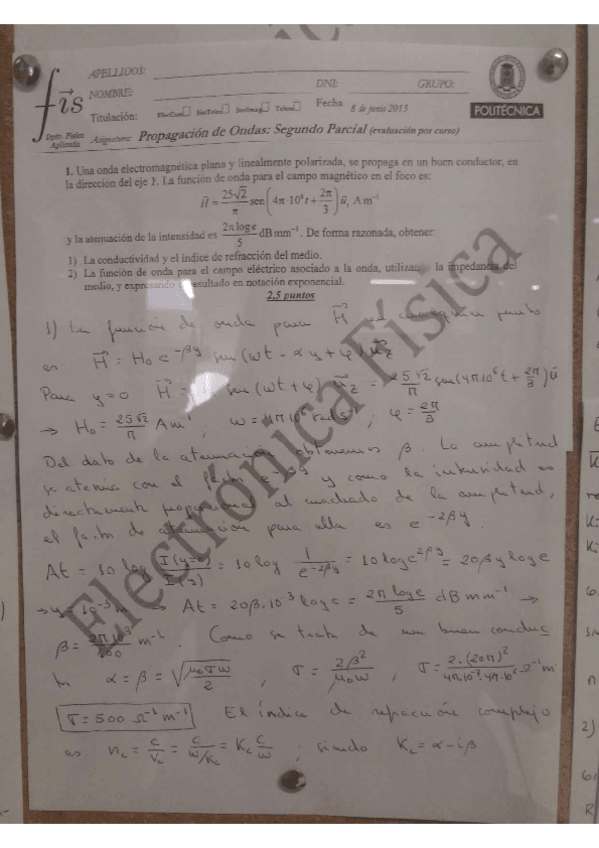 fis
Dpto. Física
Aplicada
APELLIDOS:
NOMBRE:
DNI: GRUPO:
Titulación: Fecha 8 de junio 2015
POLITÉCNICA
Asignatura: Propagación de Ondas: Segundo Parcial (evaluación por curso)
1. Una onda electromagnética plana y linealmente polarizada, se propaga en un buen conductor, en
la dirección del eje Y. La función de onda para el campo magnético en el foco es:
H⃗ = 25√2/π sen(4π·10⁶ t + 2π/3) u⃗z A m⁻¹
y la atenuación de la intensidad es 2π log e/5 dB mm⁻¹. De forma razonada, obtener
1) La conductividad y el índice de refracción del medio.
2) La función de onda para el campo eléctrico asociado a la onda, la impedancia del
medio, y resultado en notación exponencial.
2,5 puntos
1) La función de onda para H⃗ en punto
es H⃗ = H₀ e^-βy sen(wt - αy + φ) u⃗z
Para y=0 H⃗ = sen(wt + φ) u⃗z = 25√2/π sen(4π10⁶ t + 2π/3) u⃗
→ H₀ = 25√2/π A m⁻¹ ; w = 4π10⁶ rad s⁻¹ ; φ = 2π/3
Del dato de la atenuación obtenemos β. La amplitud
se atenúa con el y como la intensidad es
directamente proporcional al cuadrado de la amplitud,
el factor de atenuación para ella es e^-2βy.
At = 10 log I(y=0)/I(y) = 10 log 1/e^-2βy = 10 log e^2βy = 20βy log e
→ y = 10⁻³ m → At = 20β·10⁻³ log e = 2π log e/5 dB mm⁻¹ →
β = m⁻¹. Como se trata de un buen conduc
tor α = β = √(μ₀σw/2) , σ = 2β²/μ₀w , σ = 2·(20π)²/4π·10⁻⁷·4π·10⁶ Ω⁻¹m
σ = 500 Ω⁻¹m⁻¹ El índice de refracción complejo
es n_c = c/V_c = c/(w/K_c) = K_c c/w ; siendo K_c = α - iβ
Electrónica Física
2)